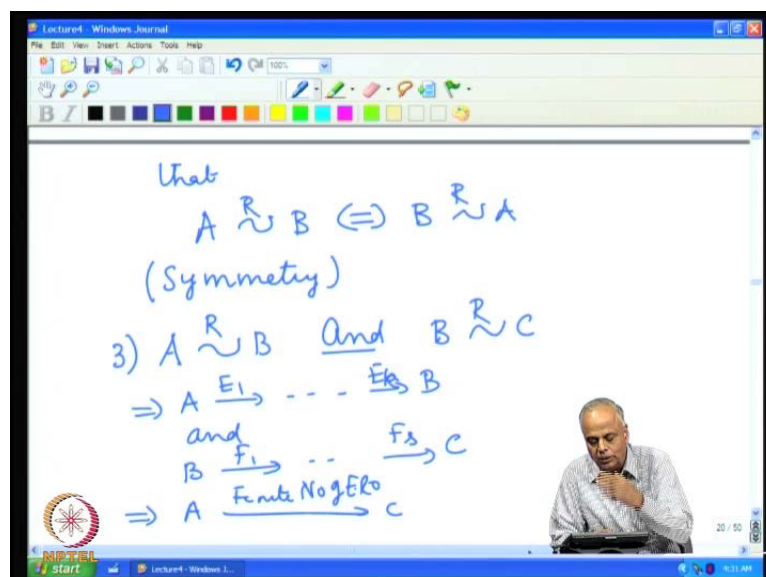 Lecture4 - Windows Journal
File Edit View Insert Actions Tools Help
100%
B I
that
A R~ B (=) B R~ A
(Symmetry)
3) A R~ B And B R~ C
=> A E1→ --- Ek→ B
and
B F1→ -- Fs→ C
=> A Finite No of ERO→ C
20 / 50
NPTEL
start
Lecture4 - Windows J...
4:31 AM